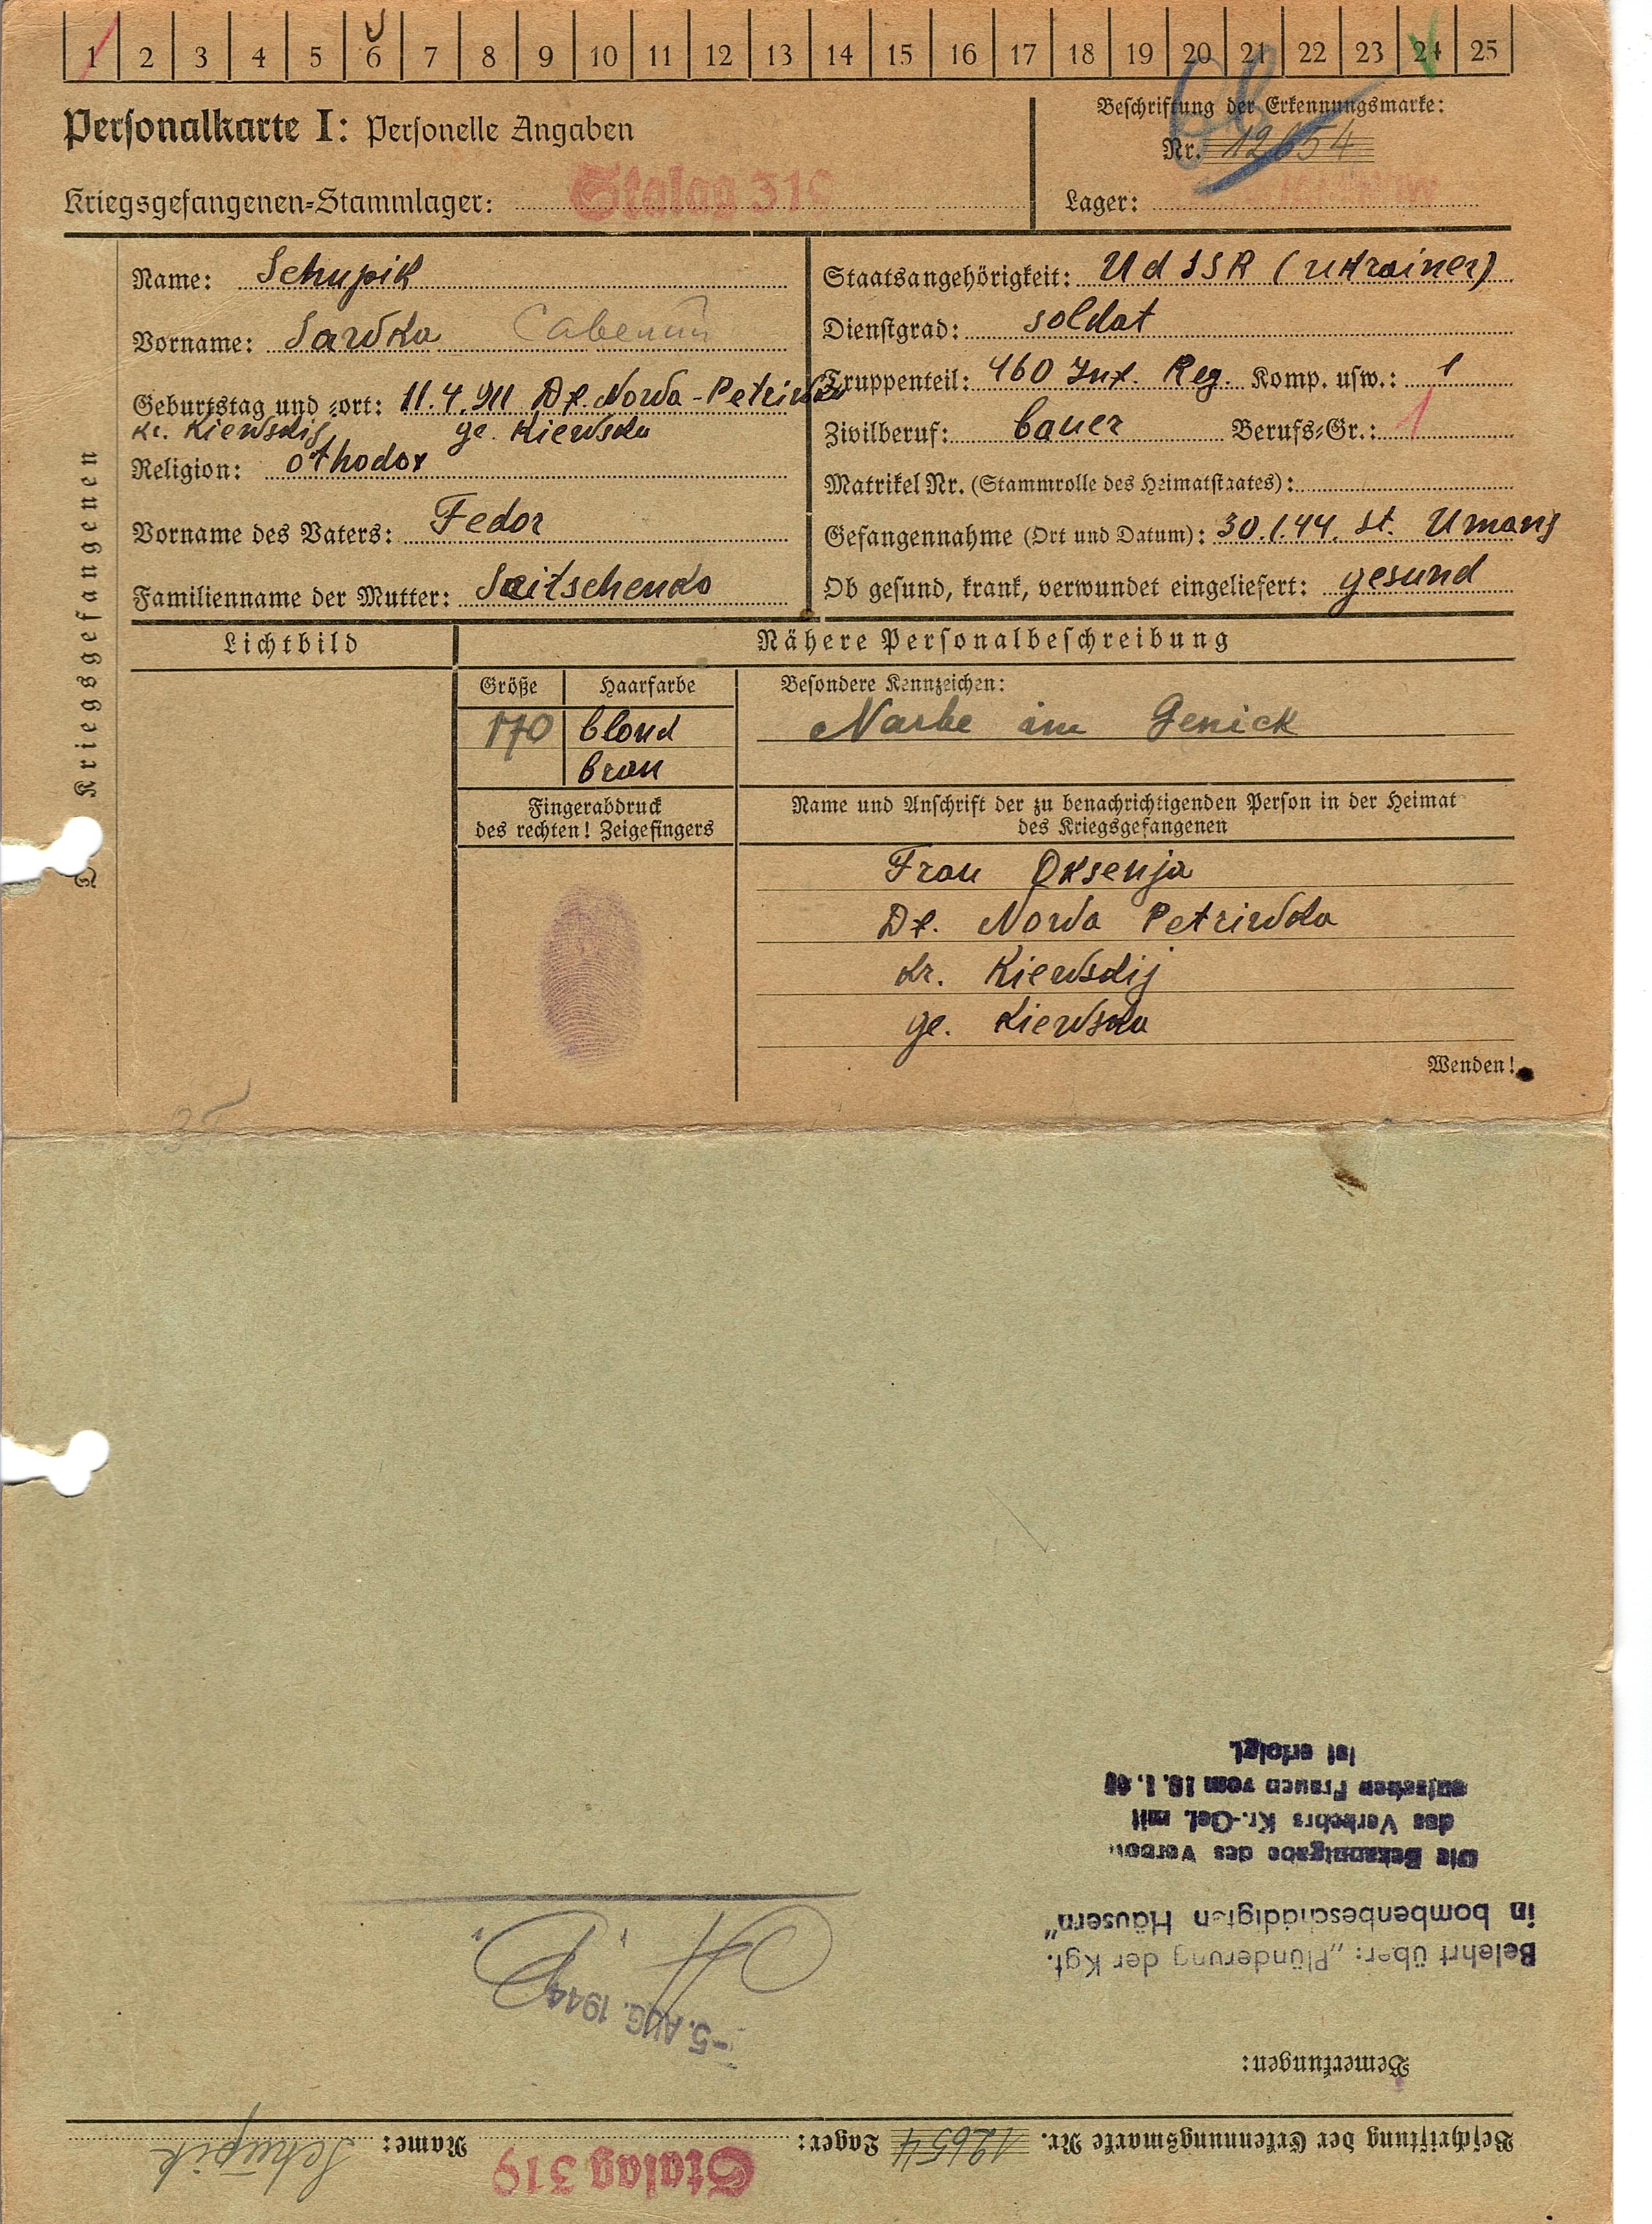 1 2 3 4 5 6 7 8 9 10 11 12 13 14 15 16 17 18 19 20 21 22 23 24 25
Personalkarte I: Personelle Angaben
Beschriftung der Erkennungsmarke:
Nr. 12654
Kriegsgefangenen-Stammlager: Stalag 319
Lager:
Des Kriegsgefangenen
Name: Schupik
Vorname: Sawka
Geburtstag und -ort: 11.4.911 Df. Nowa-Petriwka
kr. Kiewskij ge. Kiewska
Religion: othodox
Vorname des Vaters: Fedor
Familienname der Mutter: Saitschenko
Staatsangehörigkeit: UdSSR (ukrainer)
Dienstgrad: soldat
Truppenteil: 460 Inf. Reg. Komp. usw.: 1
Zivilberuf: bauer Berufs-Gr.: 1
Matrikel Nr. (Stammrolle des Heimatstaates):
Gefangennahme (Ort und Datum): 30.1.44. St. Umanj
Ob gesund, krank, verwundet eingeliefert: gesund
Lichtbild
Nähere Personalbeschreibung
Größe Haarfarbe
170 blond
braun
Besondere Kennzeichen:
Narbe im Genick
Fingerabdruck
des rechten! Zeigefingers
Name und Anschrift der zu benachrichtigenden Person in der Heimat
des Kriegsgefangenen
Frau Oksenja
Df. Nowa Petriwka
kr. Kiewskij
ge. Kiewska
Wenden!
35
Beschriftung der Erkennungsmarke Nr. 12654 Lager: Stalag 319 Name: Schupik
Bemerkungen:
-5. AUG. 1944
Belehrt über: „Plünderung der Kgf.
in bombenbeschädigten Häusern"
Die Bekanntgabe des Verbot.
des Verkehrs Kr.-Gef. mit
deutschen Frauen vom
ist erfolgt.